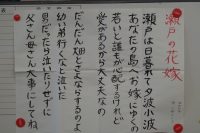 瀬戸の花嫁
瀬戸は日暮れて夕波小波
あなたの島へお嫁にゆくの
若いと誰もが心配するけれど
愛があるから大丈夫なの
だんだん畑とさよならするのよ
幼い弟行くなと泣いた
男だったら泣いたりせずに
父さん母さん大事にしてね